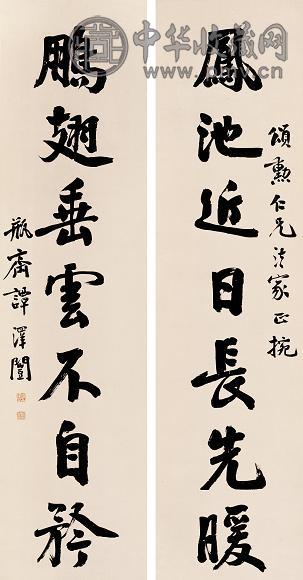 中华收藏网
頌勲仁兄法家正捥
鳳池近日長先暖
鵬翅垂雲不自矜
瓶齋譚澤闓